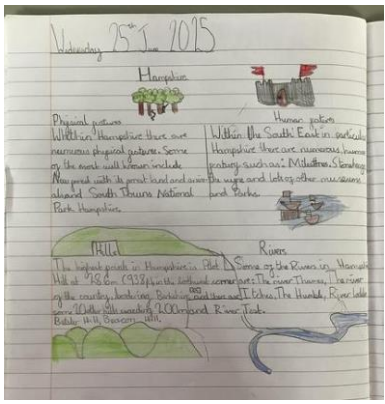 Wednesday 25th June 2025
Hampshire
Physical
Within Hampshire there are
numerous physical Some
of the most well known include
New forest with its forest land and
and South Downs National
Park Hampshire.
Human
Within the South East in particular
Hampshire there are numerous human
such as: Stonehenge
the and lots of other museums
and Parks.
Hills
The highest point in Hampshire is Pilot
Hill at 286m (938ft) in the corner
of the country, bordering and there are
some other hills exceeding 200m
Hill, Beacon Hill.
Rivers
Some of the Rivers in Hampshire
are: The river Thames, The river
Itchen, The Humble, River
and River Test.